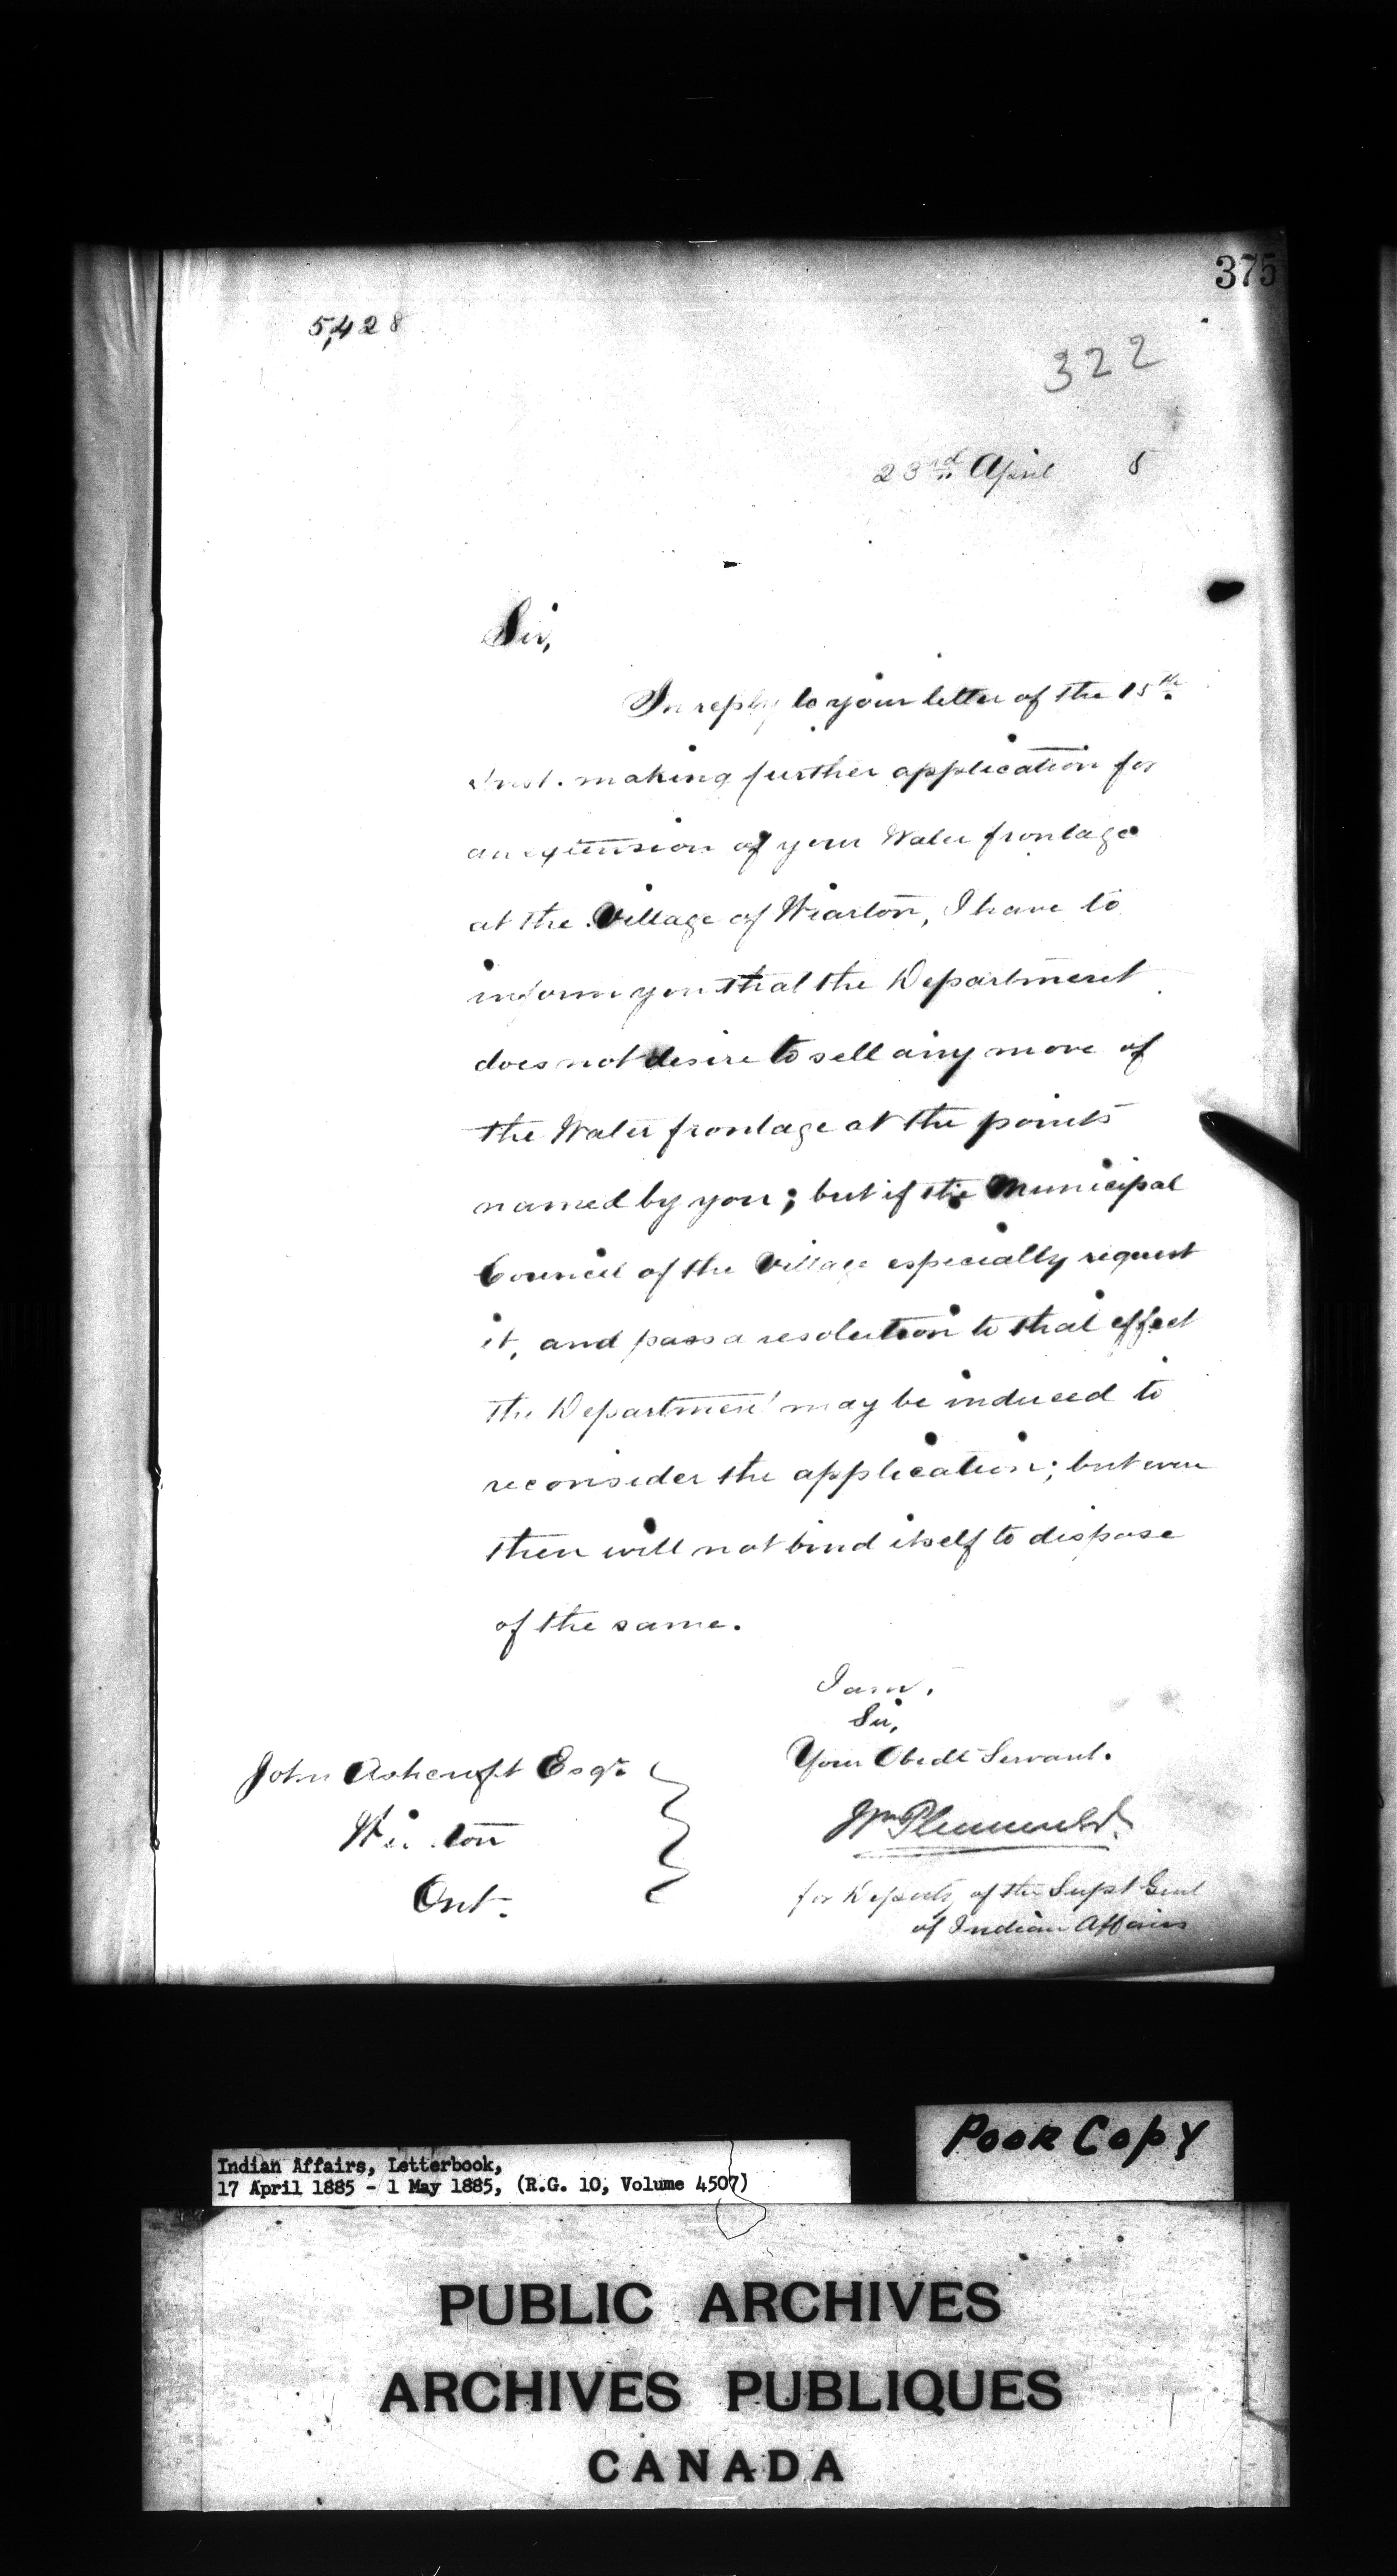 375
5,428
322
23rd April 5
Sir,
In reply to your letter of the 15th
Inst. making further application for
an extension of your Water frontage
at the Village of Wiarton, I have to
inform you that the Department
does not desire to sell any more of
the Water frontage at the points
named by you; but if the Municipal
Council of the Village especially request
it, and pass a resolution to that effect
the Department may be induced to
reconsider the application; but even
then will not bind itself to dispose
of the same.
I am,
Sir,
Your Obedt Servant.
John Ashcroft Esqr.
Wiarton
Ont.
Wm Plummer
for Deputy of the Supt Genl
of Indian Affairs
Poor Copy
Indian Affairs, Letterbook,
17 April 1885 - 1 May 1885, (R.G. 10, Volume 4507)
PUBLIC ARCHIVES
ARCHIVES PUBLIQUES
CANADA